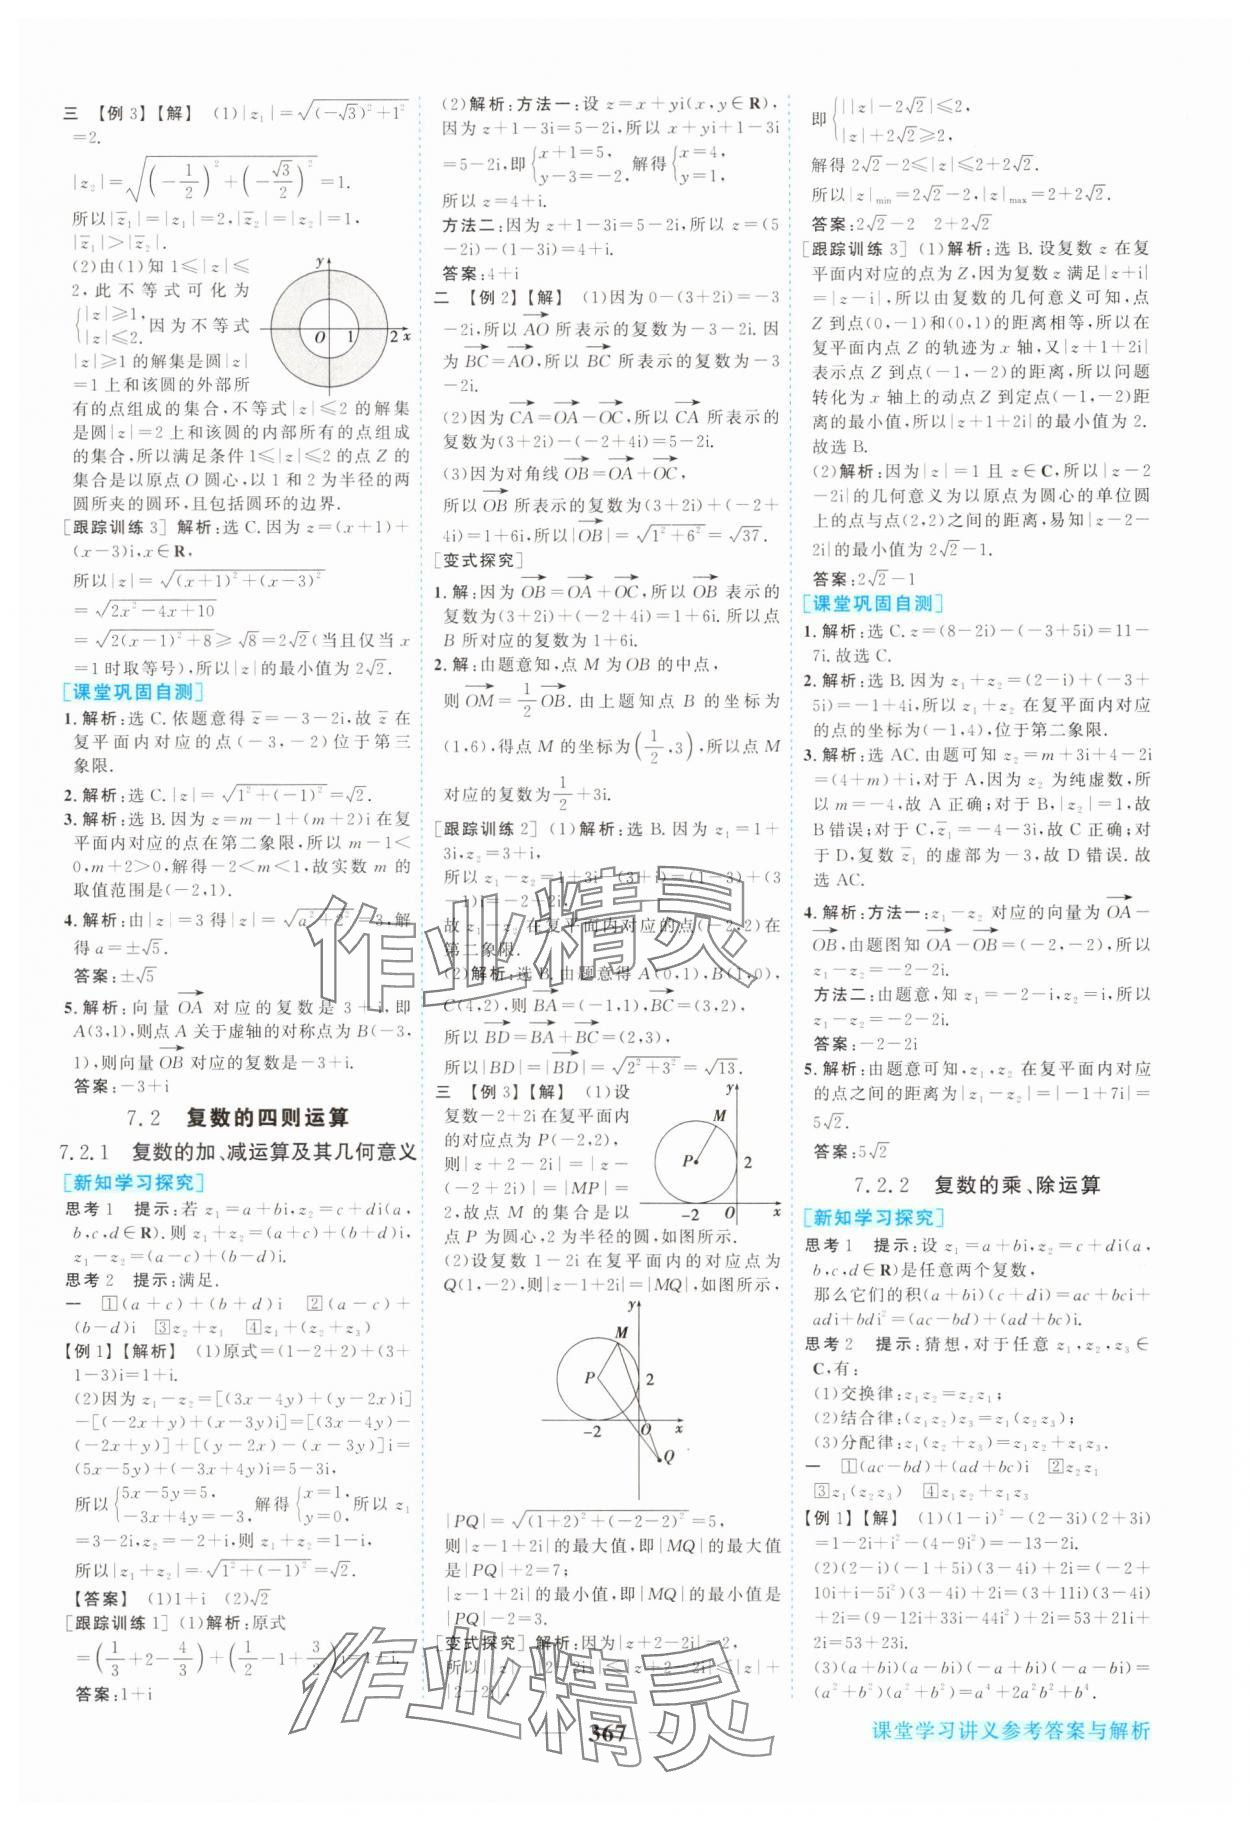 三 【例3】【解】 (1)|z₁|=√((-√3)²+1²)
=2.
|z₂|=√((-1/2)²+(-√3/2)²)=1.
所以|z̄₁|=|z₁|=2,|z̄₂|=|z₂|=1,
|z̄₁|>|z̄₂|.
(2)由(1)知1≤|z|≤
2,此不等式可化为
{|z|≥1,
|z|≤2. 因为不等式
|z|≥1的解集是圆|z|
=1上和该圆的外部所
有的点组成的集合,不等式|z|≤2的解集
是圆|z|=2上和该圆的内部所有的点组成
的集合,所以满足条件1≤|z|≤2的点Z的
集合是以原点O圆心,以1和2为半径的两
圆所夹的圆环,且包括圆环的边界.
y
O 1 2 x
[跟踪训练3] 解析:选C.因为z=(x+1)+
(x-3)i,x∈R,
所以|z|=√((x+1)²+(x-3)²)
=√(2x²-4x+10)
=√(2(x-1)²+8)≥√8=2√2(当且仅当x
=1时取等号),所以|z|的最小值为2√2.
[课堂巩固自测]
1.解析:选C.依题意得z̄=-3-2i,故z̄在
复平面内对应的点(-3,-2)位于第三
象限.
2.解析:选C.|z|=√(1²+(-1)²)=√2.
3.解析:选B.因为z=m-1+(m+2)i在复
平面内对应的点在第二象限,所以m-1<
0,m+2>0,解得-2<m<1,故实数m的
取值范围是(-2,1).
4.解析:由|z|=3得|z|=√(a²+2²)=3,解
得a=±√5.
答案:±√5
5.解析:向量OA→对应的复数是3+i,即
A(3,1),则点A关于虚轴的对称点为B(-3,
1),则向量OB→对应的复数是-3+i.
答案:-3+i
7.2 复数的四则运算
7.2.1 复数的加、减运算及其几何意义
[新知学习探究]
思考1 提示:若z₁=a+bi,z₂=c+di(a,
b,c,d∈R).则z₁+z₂=(a+c)+(b+d)i,
z₁-z₂=(a-c)+(b-d)i.
思考2 提示:满足.
一 1(a+c)+(b+d)i 2(a-c)+
(b-d)i 3z₂+z₁ 4z₁+(z₂+z₃)
【例1】【解析】 (1)原式=(1-2+2)+(3+
1-3)i=1+i.
(2)因为z₁-z₂=[(3x-4y)+(y-2x)i]
-[(-2x+y)+(x-3y)i]=[(3x-4y)-
(-2x+y)]+[(y-2x)-(x-3y)]i=
(5x-5y)+(-3x+4y)i=5-3i,
所以{5x-5y=5,
-3x+4y=-3, 解得{x=1,
y=0, 所以z₁
=3-2i,z₂=-2+i,则z₁+z₂=1-i,
所以|z₁+z₂|=√(1²+(-1)²)=√2.
【答案】 (1)1+i (2)√2
[跟踪训练1] (1)解析:原式
=(1/3+2-4/3)+(1/2-1+3/2)i=1+i.
答案:1+i
(2)解析:方法一:设z=x+yi(x,y∈R),
因为z+1-3i=5-2i,所以x+yi+1-3i
=5-2i,即{x+1=5,
y-3=-2, 解得{x=4,
y=1,
所以z=4+i.
方法二:因为z+1-3i=5-2i,所以z=(5
-2i)-(1-3i)=4+i.
答案:4+i
二 【例2】【解】 (1)因为0-(3+2i)=-3
-2i,所以AO→所表示的复数为-3-2i.因
为BC→=AO→,所以BC→所表示的复数为-3
-2i.
(2)因为CA→=OA→-OC→,所以CA→所表示的
复数为(3+2i)-(-2+4i)=5-2i.
(3)因为对角线OB→=OA→+OC→,
所以OB→所表示的复数为(3+2i)+(-2+
4i)=1+6i,所以|OB→|=√(1²+6²)=√37.
[变式探究]
1.解:因为OB→=OA→+OC→,所以OB→表示的
复数为(3+2i)+(-2+4i)=1+6i.所以点
B所对应的复数为1+6i.
2.解:由题意知,点M为OB的中点,
则OM→=1/2OB→.由上题知点B的坐标为
(1,6),得点M的坐标为(1/2,3),所以点M
对应的复数为1/2+3i.
[跟踪训练2] (1)解析:选B.因为z₁=1+
3i,z₂=3+i,
所以z₁-z₂=1+3i-(3+i)=(1-3)+(3
-1)i=-2+2i,
故z₁-z₂在复平面内对应的点(-2,2)在
第二象限.
(2)解析:选B.由题意得A(0,1),B(1,0),
C(4,2),则BA→=(-1,1),BC→=(3,2),
所以BD→=BA→+BC→=(2,3),
所以|BD|=|BD→|=√(2²+3²)=√13.
三 【例3】【解】 (1)设
复数-2+2i在复平面内
的对应点为P(-2,2),
则|z+2-2i|=|z-
(-2+2i)|=|MP|=
2,故点M的集合是以
点P为圆心,2为半径的圆,如图所示.
y
M
P 2
-2 O x
(2)设复数1-2i在复平面内的对应点为
Q(1,-2),则|z-1+2i|=|MQ|,如图所示,
y
M
P 2
-2 O x
Q
|PQ|=√((1+2)²+(-2-2)²)=5,
则|z-1+2i|的最大值,即|MQ|的最大值为
|PQ|+2=7;
|z-1+2i|的最小值,即|MQ|的最小值是
|PQ|-2=3.
[变式探究] 解析:因为|z+2-2i|=2,
所以||z|-|2-2i||≤2≤|z|+
|2-2i|,
即{||z|-2√2|≤2,
|z|+2√2≥2,
解得2√2-2≤|z|≤2+2√2.
所以|z|min=2√2-2,|z|max=2+2√2.
答案:2√2-2 2+2√2
[跟踪训练3] (1)解析:选B.设复数z在复
平面内对应的点为Z,因为复数z满足|z+i|
=|z-i|,所以由复数的几何意义可知,点
Z到点(0,-1)和(0,1)的距离相等,所以在
复平面内点Z的轨迹为x轴,又|z+1+2i|
表示点Z到点(-1,-2)的距离,所以问题
转化为x轴上的动点Z到定点(-1,-2)距
离的最小值,所以|z+1+2i|的最小值为2.
故选B.
(2)解析:因为|z|=1且z∈C,所以|z-2
-2i|的几何意义为以原点为圆心的单位圆
上的点与点(2,2)之间的距离,易知|z-2-
2i|的最小值为2√2-1.
答案:2√2-1
[课堂巩固自测]
1.解析:选C.z=(8-2i)-(-3+5i)=11-
7i.故选C.
2.解析:选B.因为z₁+z₂=(2-i)+(-3+
5i)=-1+4i,所以z₁+z₂在复平面内对应
的点的坐标为(-1,4),位于第二象限.
3.解析:选AC.由题可知z₂=m+3i+4-2i
=(4+m)+i,对于A,因为z₂为纯虚数,所
以m=-4,故A正确;对于B,|z₂|=1,故
B错误;对于C,z̄₁=-4-3i,故C正确;对
于D,复数z̄₁的虚部为-3,故D错误.故
选AC.
4.解析:方法一:z₁-z₂对应的向量为OA→-
OB→,由题图知OA→-OB→=(-2,-2),所以
z₁-z₂=-2-2i.
方法二:由题意,知z₁=-2-i,z₂=i,所以
z₁-z₂=-2-2i.
答案:-2-2i
5.解析:由题意可知,z₁,z₂在复平面内对应
的点之间的距离为|z₁-z₂|=|-1+7i|=
5√2.
答案:5√2
7.2.2 复数的乘、除运算
[新知学习探究]
思考1 提示:设z₁=a+bi,z₂=c+di(a,
b,c,d∈R)是任意两个复数,
那么它们的积(a+bi)(c+di)=ac+bci+
adi+bdi²=(ac-bd)+(ad+bc)i.
思考2 提示:猜想,对于任意z₁,z₂,z₃∈
C,有:
(1)交换律:z₁z₂=z₂z₁;
(2)结合律:(z₁z₂)z₃=z₁(z₂z₃);
(3)分配律:z₁(z₂+z₃)=z₁z₂+z₁z₃.
一 1(ac-bd)+(ad+bc)i 2z₂z₁
3z₁(z₂z₃) 4z₁z₂+z₁z₃
【例1】【解】 (1)(1-i)²-(2-3i)(2+3i)
=1-2i+i²-(4-9i²)=-13-2i.
(2)(2-i)(-1+5i)(3-4i)+2i=(-2+
10i+i-5i²)(3-4i)+2i=(3+11i)(3-4i)
+2i=(9-12i+33i-44i²)+2i=53+21i+
2i=53+23i.
(3)(a+bi)(a-bi)(-a+bi)(-a-bi)=
(a²+b²)(a²+b²)=a⁴+2a²b²+b⁴.
作业精灵
作业精灵
367
课堂学习讲义参考答案与解析